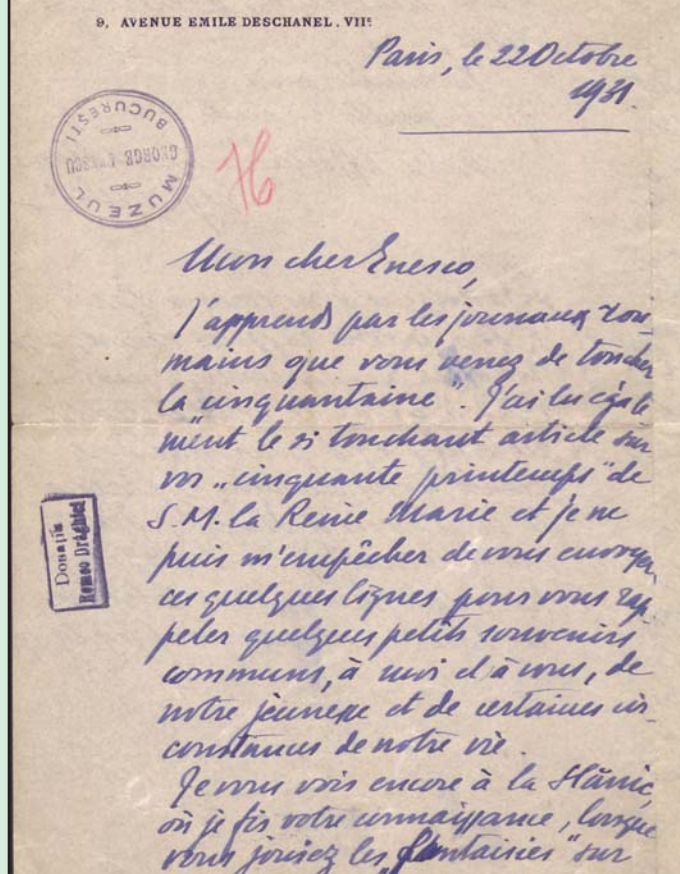 9, AVENUE EMILE DESCHANEL. VIIE
Paris, le 22 Octobre
1931.
MUZEUL
GEORGE ENESCU
BUCUREȘTI
76
Mon cher Enesco,
J'apprends par les journaux rou-
mains que vous venez de toucher
la cinquantaine". J'ai lu égale
ment le si touchant article sur
vos „cinquante printemps" de
S.M. la Reine Marie et je ne
puis m'empêcher de vous envoyer
ces quelques lignes pour vous rap
peler quelques petits souvenirs
communs, à moi et à vous, de
notre jeunesse et de certaines cir-
constances de notre vie.
Je vous vois encore à la Slănic,
où je fis votre connaissance, lorsque
vous jouiez les „fantaisies" sur
Donația
Romeo Drăghici